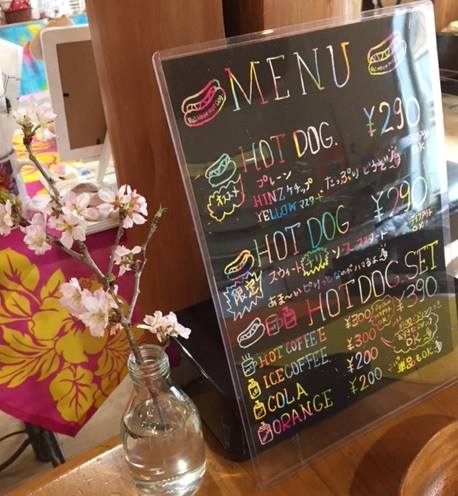 MENU
HOT DOG. ¥290
プレーン
HINZケチャップ
YELLOWマスタード たっぷりどうぞ
HOT DOG ¥290
スウィート ソースマスタード
限定
HOTDOG SET
¥390
HOT COFFEE ¥300
ICE COFFEE ¥300
COLA ¥200
ORANGE ¥200
単品もOK